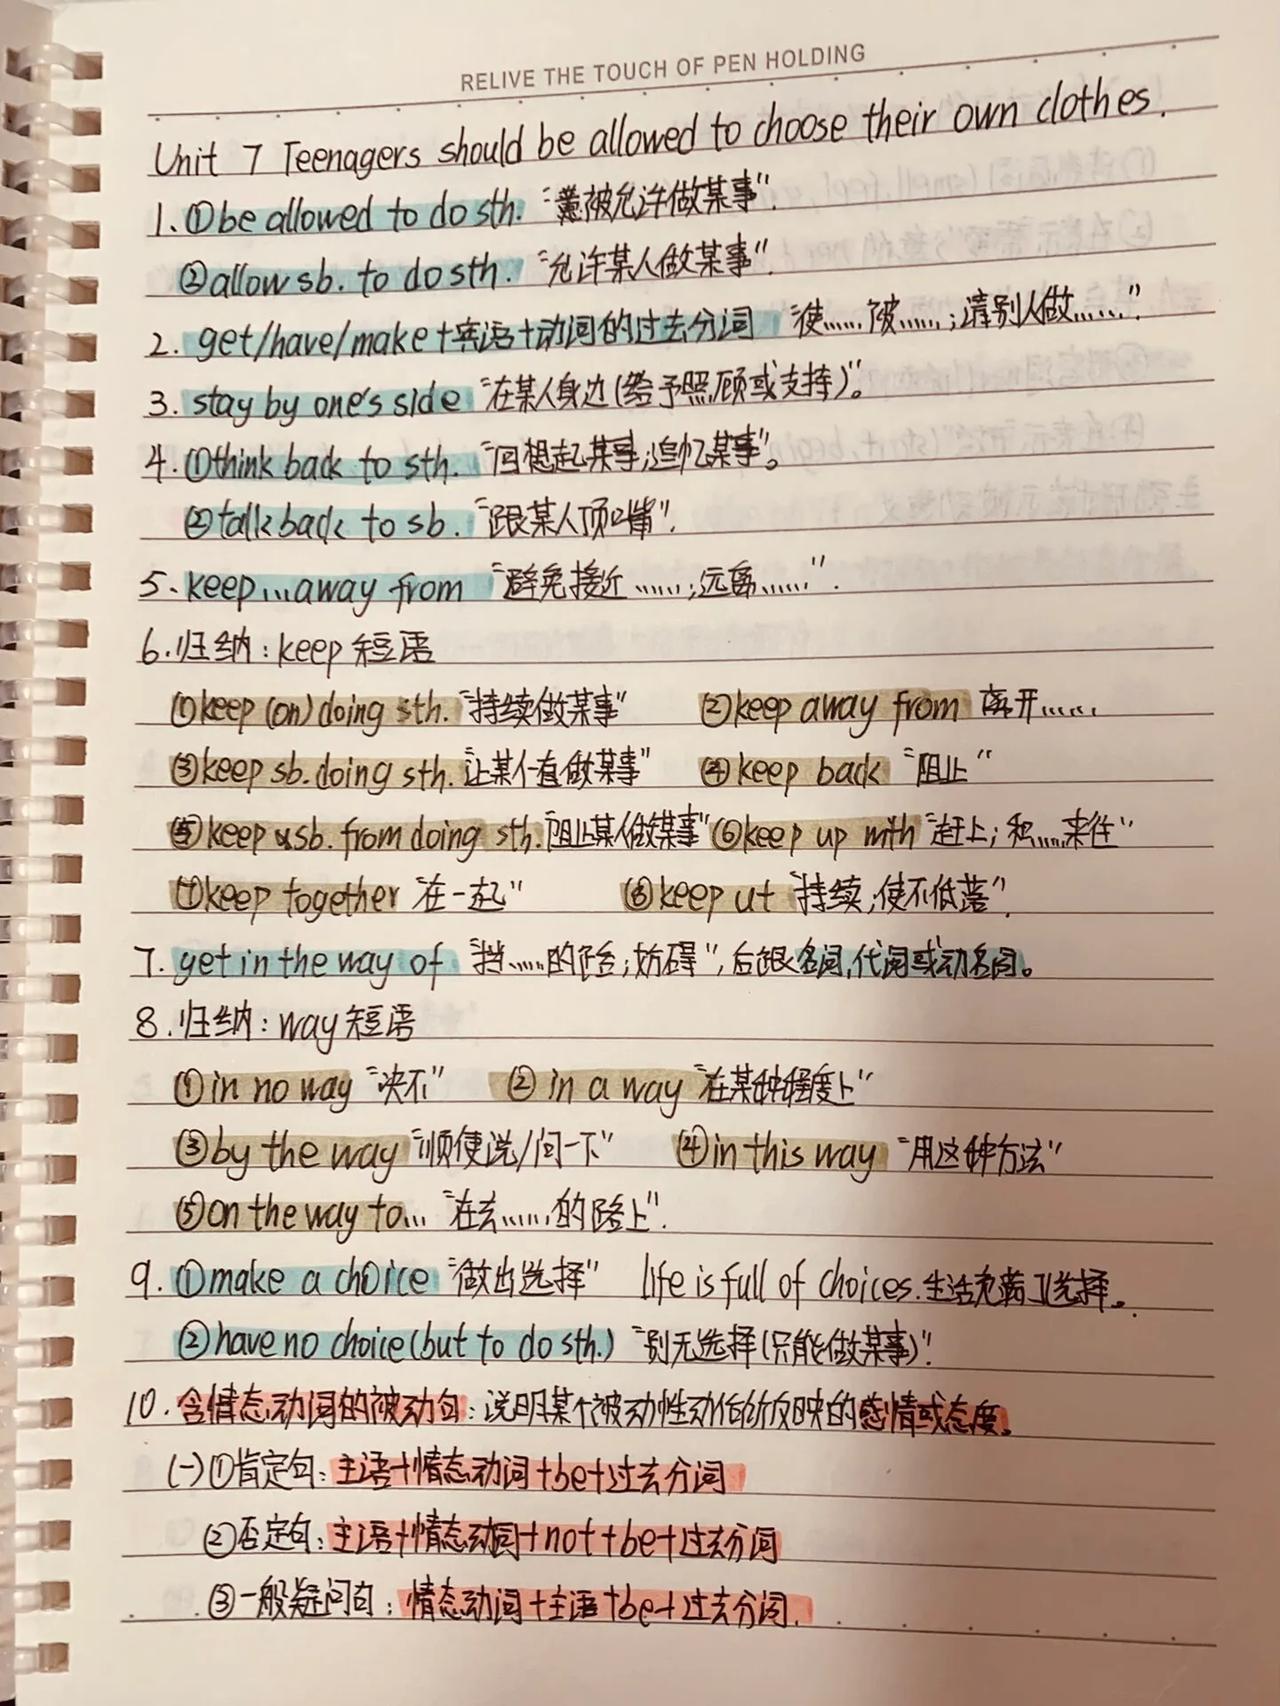 RELIVE THE TOUCH OF PEN HOLDING
Unit 7 Teenagers should be allowed to choose their own clothes.
1. ①be allowed to do sth. "被允许做某事".
②allow sb. to do sth. "允许某人做某事".
2. get/have/make+宾语+动词的过去分词 "使……被……;请别人做……".
3. stay by one's side "在某人身边(给予照顾或支持)"。
4. ①think back to sth. "回想起某事;追忆某事"。
②talk back to sb. "跟某人顶嘴".
5. keep...away from "避免接近……;远离……".
6. 归纳: keep 短语
①keep (on) doing sth. "持续做某事" ②keep away from 离开……
③keep sb. doing sth. 让某人一直做某事" ④keep back "阻止"
⑤keep sb. from doing sth. "阻止某人做某事" ⑥keep up with "赶上; 和……来往"
⑦keep together "在一起" ⑧keep ut "持续;使不低落".
7. get in the way of "挡……的路;妨碍",后跟名词,代词或动名词。
8. 归纳: way 短语
①in no way "决不" ② in a way "在某种程度上"
③by the way "顺便说/问一下" ④in this way "用这种方法"
⑤on the way to... "在去……的路上".
9. ①make a choice "做出选择" life is full of choices. 生活充满了选择。
②have no choice(but to do sth.) "别无选择(只能做某事)".
10. 含情态动词的被动句: 说明某个被动性动作所反映的感情或态度。
(一)①肯定句: 主语+情态动词+be+过去分词
②否定句: 主语+情态动词+not+be+过去分词
③一般疑问句: 情态动词+主语+be+过去分词.